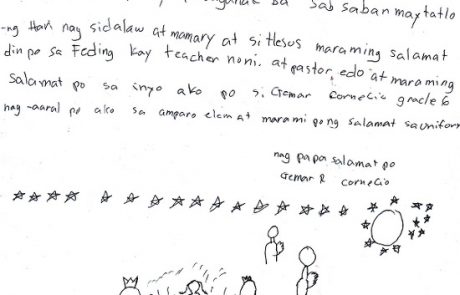 sa sab saban may tatlo
-ng Hari nag sidalaw at mamary at sitlesus maraming salamat
din po sa Feding kay teacher noni. at pastor edo at maraming
salamat po sa inyo ako po si Gemar Cornelio gracle 6
nag-aaral po ako sa amparo elem at marami pong salamat sa uniform
nag papa salamat po
Gemar R cornelio